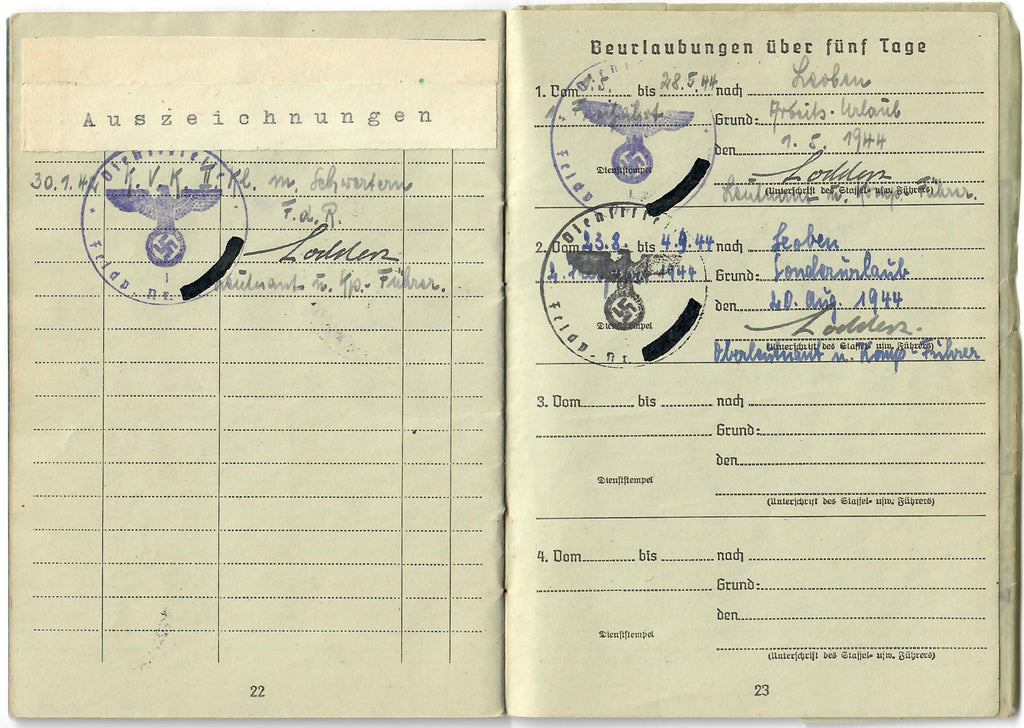 Auszeichnungen
30.1.44 K.V.K. II Kl. m. Schwertern
F.d.R.
Lodders
Leutnant u. Kp.-Führer.
Dienststelle
Feldp.-Nr.
22
Beurlaubungen über fünf Tage
1. Vom .5. bis 28.5.44 nach Leoben
Grund: Arbeits-Urlaub
den 1.5.1944
Dienststempel
Lodders
(Unterschrift des Staffel- usw. Führers)
Leutnant u. Komp.-Führer.
Feldp.
2. Vom 23.8. bis 4.9.44 nach Leoben
1944 Grund: Sonderurlaub
den 20. Aug. 1944
Dienststempel
Lodders
(Unterschrift des Staffel- usw. Führers)
Oberleutnant u. Komp-Führer
Dienststelle
Feldp.-Nr.
3. Vom bis nach
Grund:
den
Dienststempel
(Unterschrift des Staffel- usw. Führers)
4. Vom bis nach
Grund:
den
Dienststempel
(Unterschrift des Staffel- usw. Führers)
23